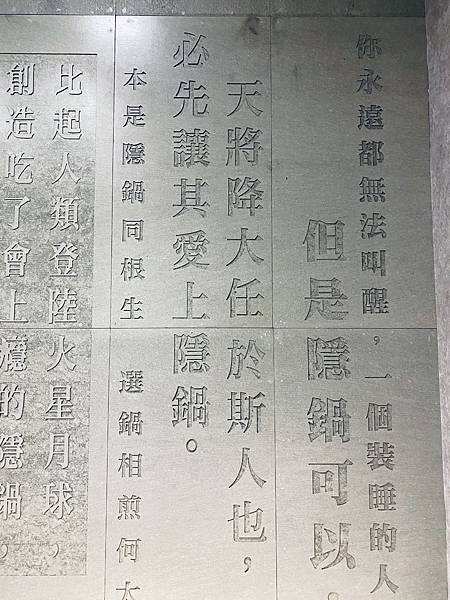 你永遠都無法叫醒，一個裝睡的人
但是隱鍋可以。
天將降大任於斯人也，
必先讓其愛上隱鍋。
本是隱鍋同根生 選鍋相煎何太
比起人類登陸火星月球，
創造吃了會上癮的隱鍋，